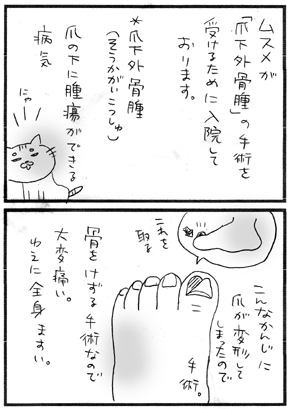 ムスメが
「爪下外骨腫」の手術を
受けるために入院して
おります。
*爪下外骨腫
(そうかがいこつしゅ)
爪の下に腫瘍ができる
病気
にゃ
こんなかんじに
爪が変形して
しまったので
これを
取る
手術。
骨をけずる手術なので
大変痛い。
ゆえに全身
ますい。